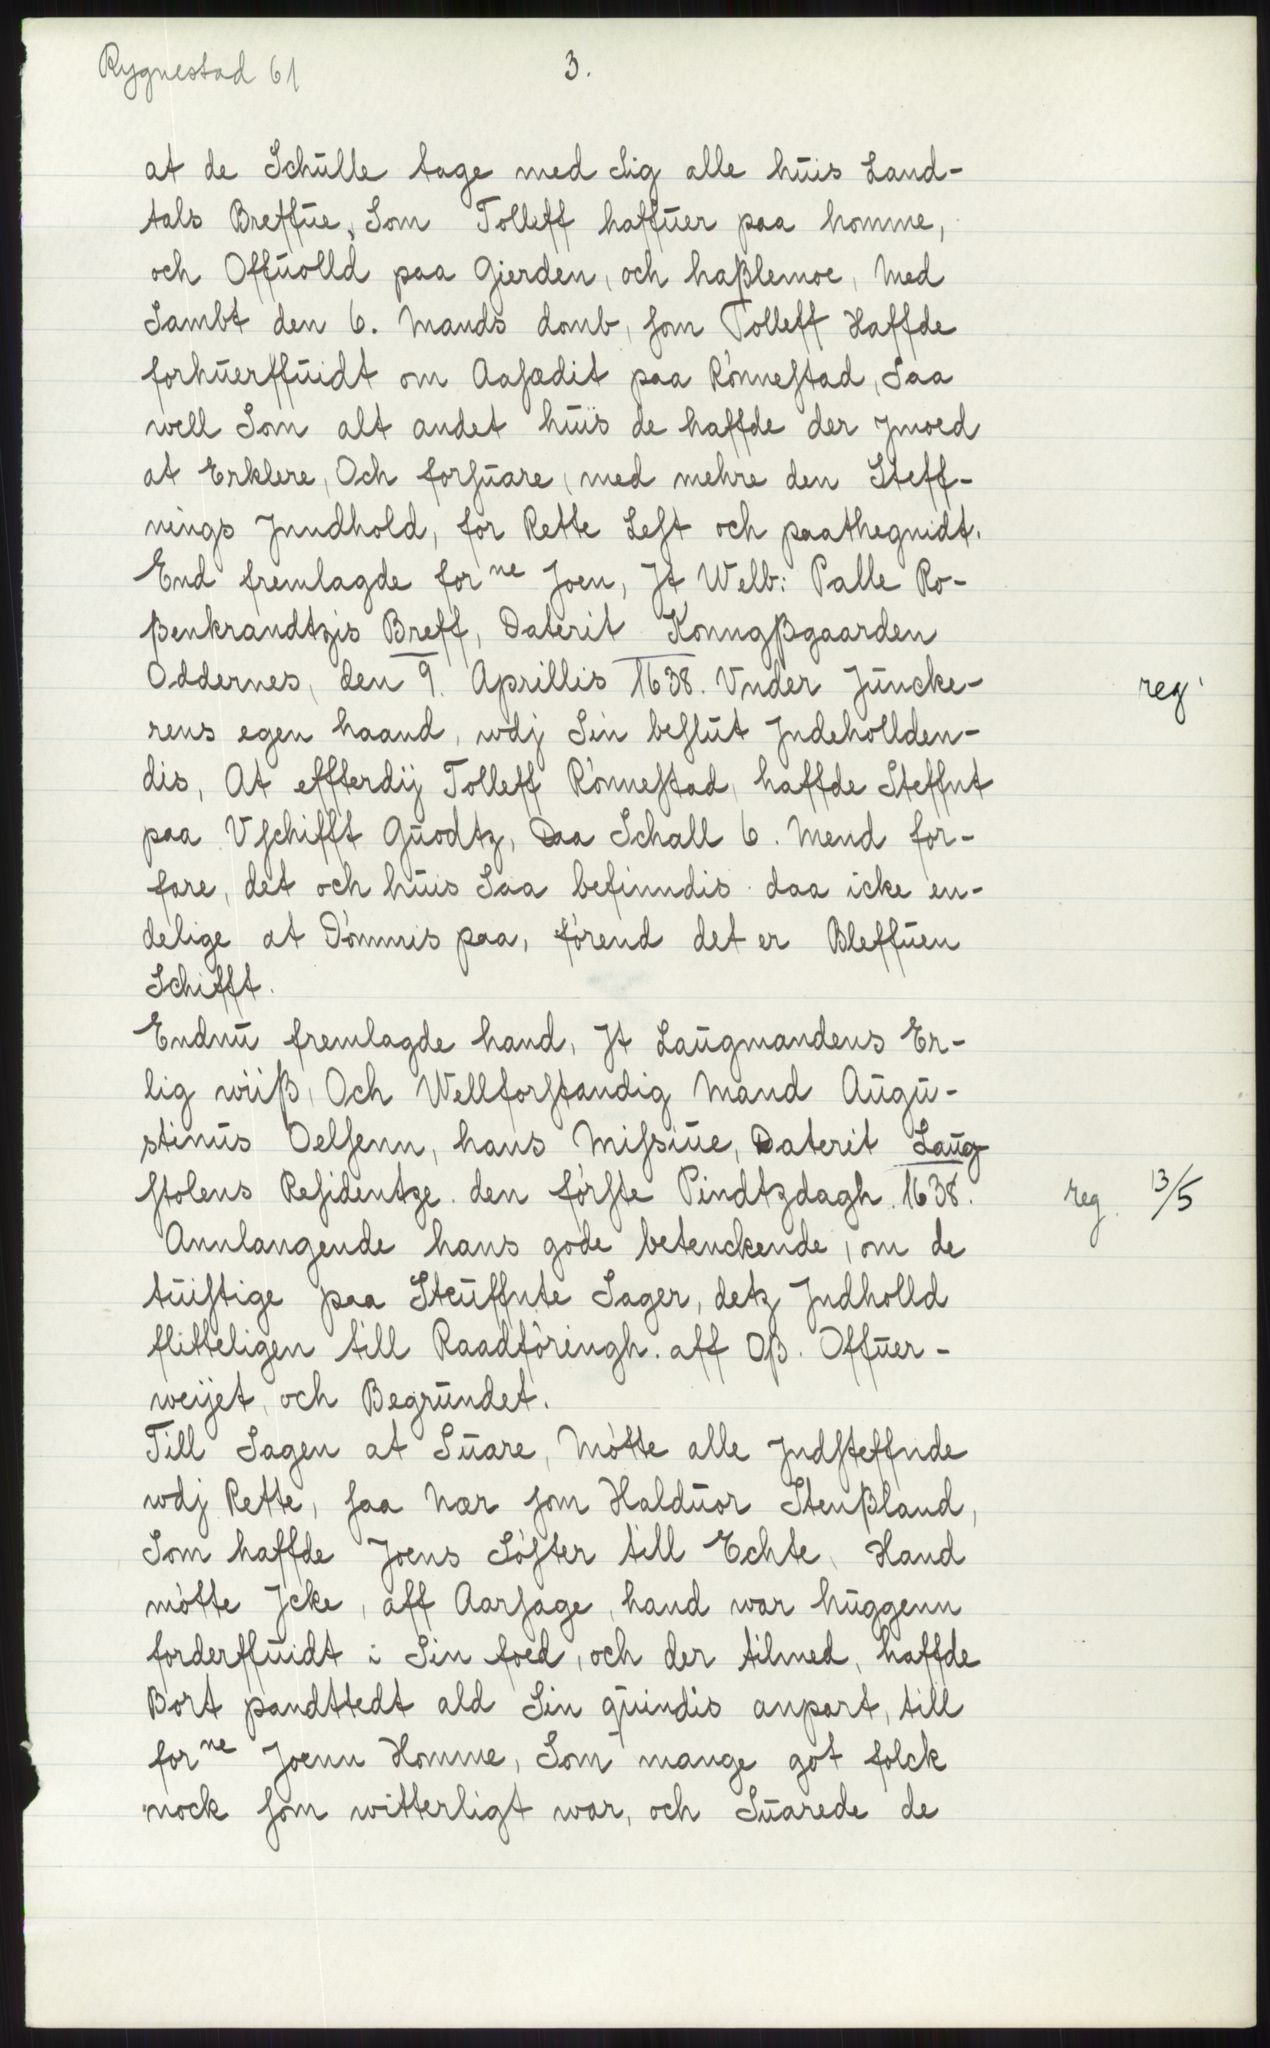 Rygnestad 61
3.
at de Schŭlle tage med Sig alle hŭis Land-
tals Breffŭe, Som Tolleff haffŭer paa homme,
och Offŭolld paa Gierden, och haßlemoe, Med
Sambt den 6. Mands domb, som Tolleff Haffde
forhŭerffŭidt om Aasædit paa Rónnestad, Saa
well Som alt andet hŭis de haffde der jmoed
at Erklere, Och forsŭare, med mehre den Steff-
nings Jnndhold, for Rette Lest och paathegnidt.
End fremlagde forne Joen, Jt Welb: Palle Ro-
ßenkrandtzis Breff, Daterit Konngßgaarden
Oddernes, den 9. Aprillis 1638. Vnder Jŭncke-
reg
rens egen haand, wdj Sin beslŭt Jndehollden-
dis, At effterdij Tolleff Rónnestad, haffde Steffnt
paa Vschifft Gŭodtz, Daa Schall 6. Mend for-
fare, det och hŭis Saa befinndis daa icke en-
delige at Dómmis paa, fórend det er Bleffŭen
Schifft.
Endnŭ fremlagde hand, Jt Laŭgmandens Er-
lig wiiß, Och Wellforstandig Mand Aŭgŭ-
stinŭs Oelsenn, hans Missiŭe, Daterit Laŭg
stolens Residentze. den fórste Pindtzdagh. 1638.
reg. 13/5
Annlangende hans gode betenckende, om de
tŭistige paa Steŭffnte Sager, detz Jndholld
flitteligen till Raadfóringh. aff Oß. Offŭer-
weijet, och Begrŭndet.
Till Sagen at Sŭare, Mótte alle Jndsteffnde
wdj Rette, saa Nær som Haldŭor Stenßland,
Som haffde Joens Sóster till Echte, Hand
mótte Jcke, aff Aarsage, hand war hŭggenn
forderffŭidt i Sin foed, och der tilmed, haffde
Bort pandttedt ald Sin qŭindis anpart, till
forne Joenn Homme, Som mange got folck
nock som witterligt war, och Sŭarede de